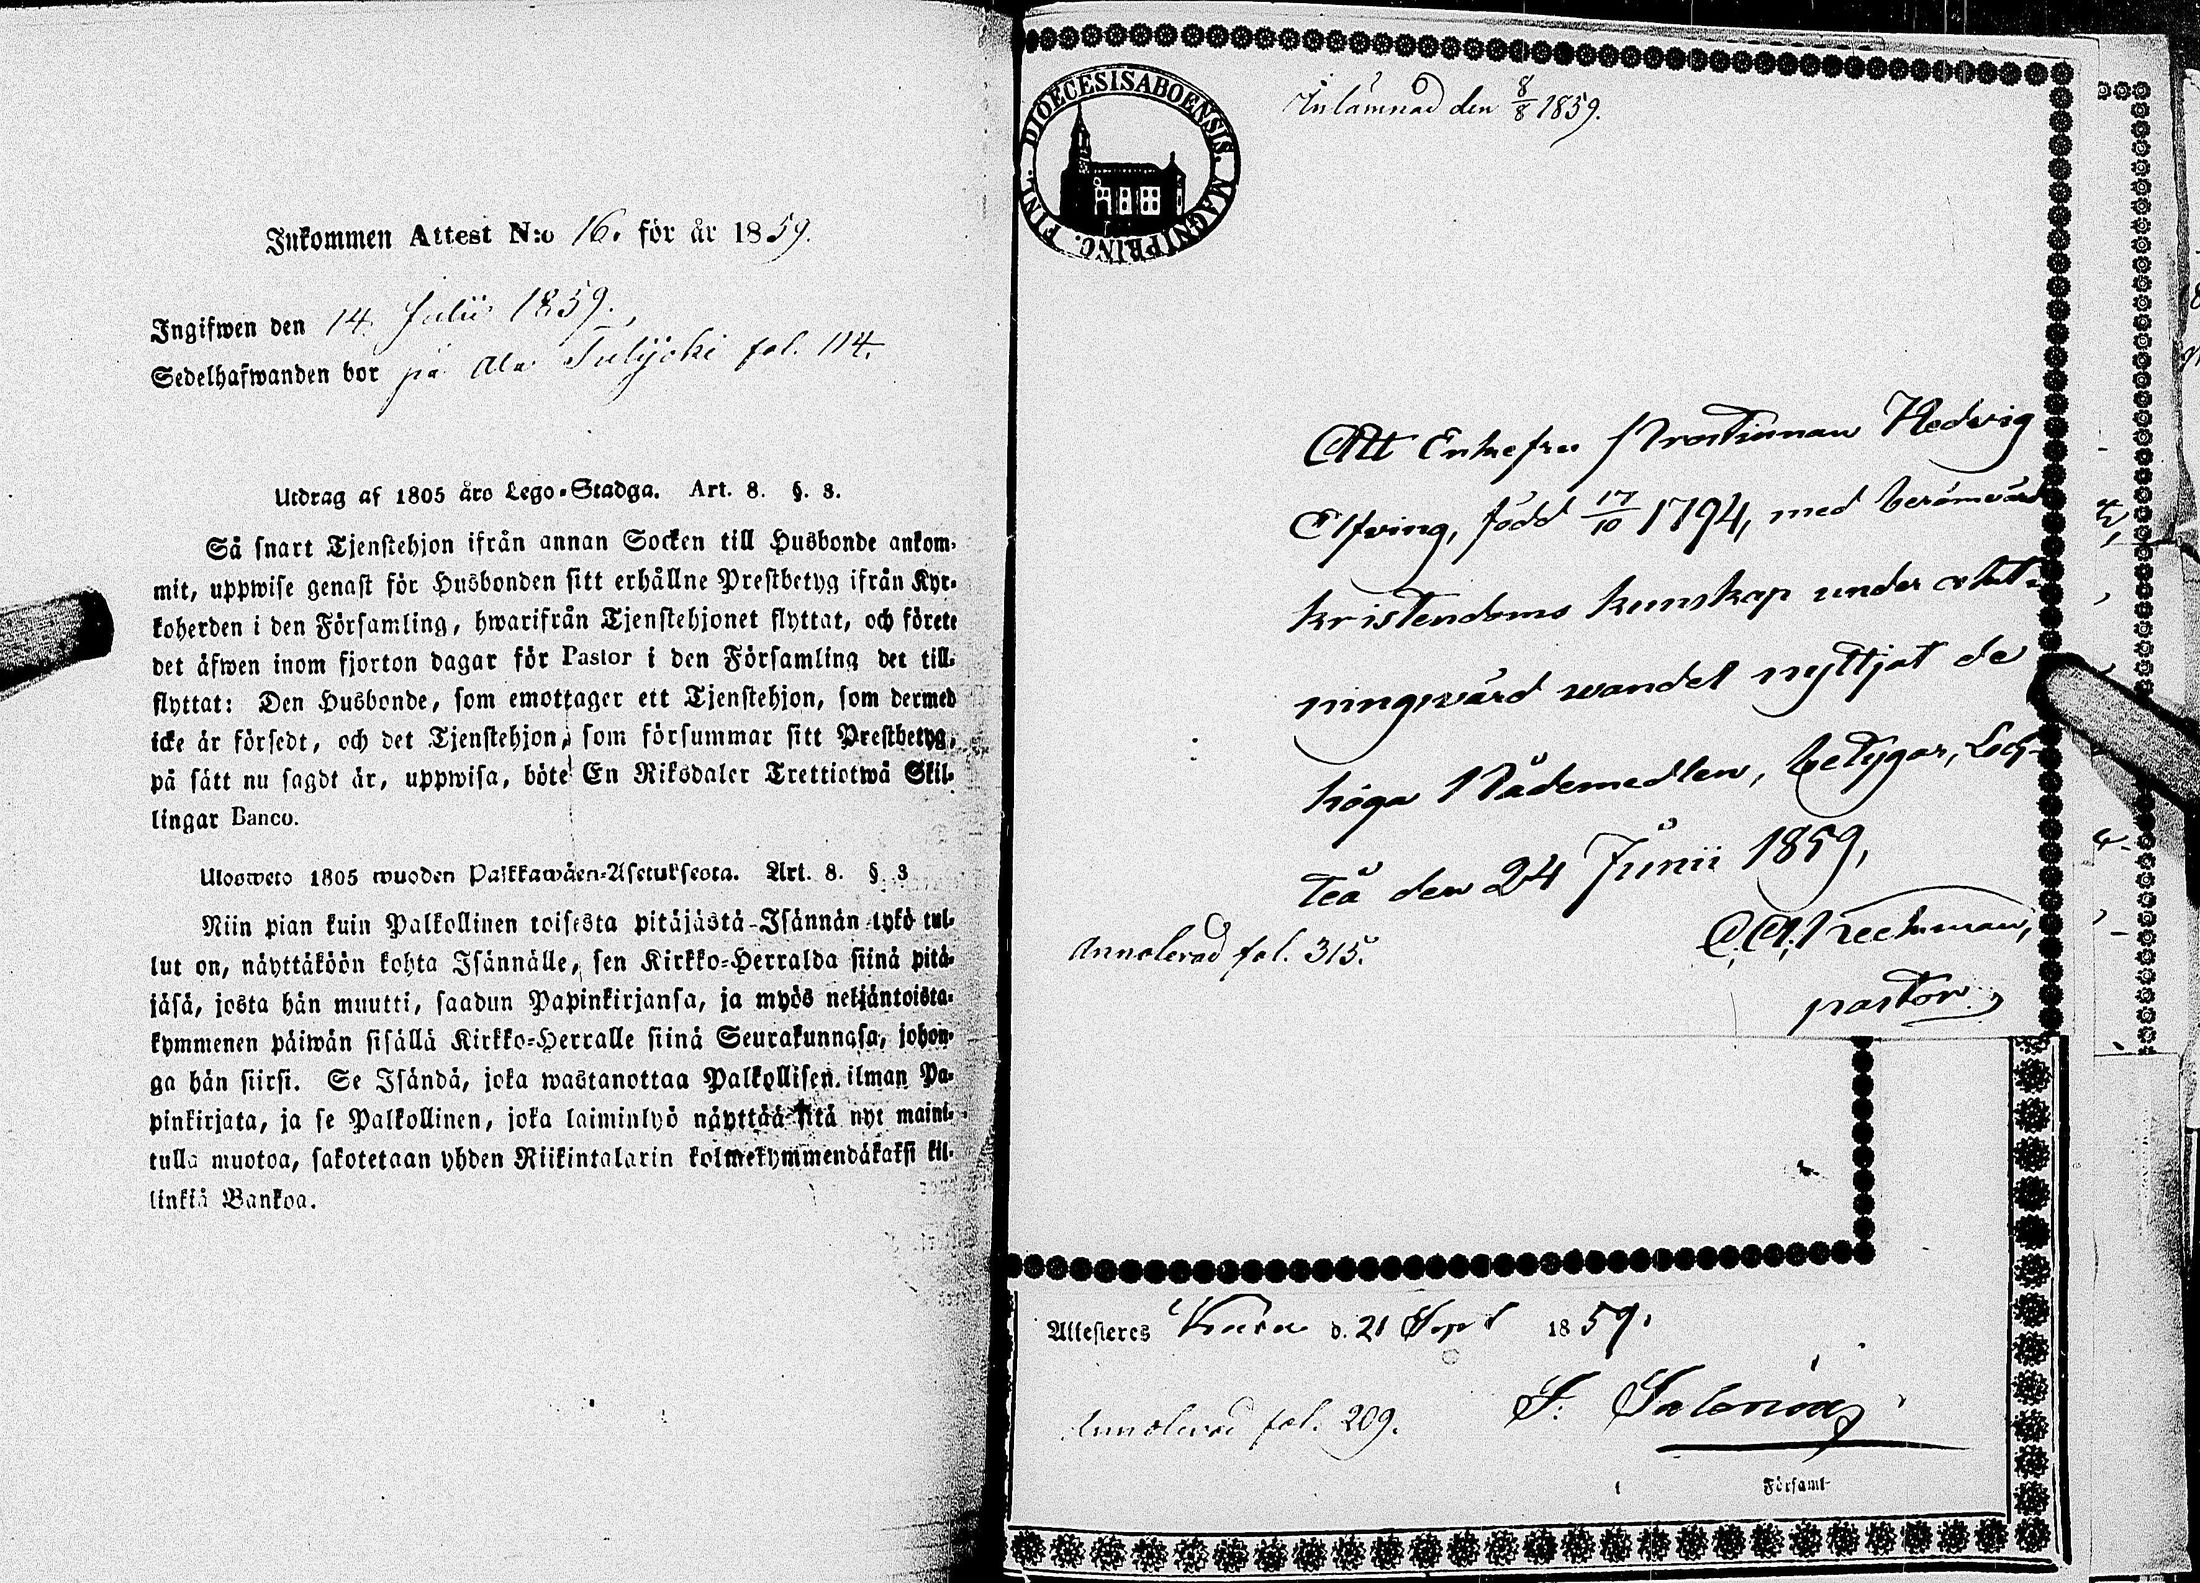 Inkommen Attest N:o 16. för år 1859.
Ingifwen den 14 Julii 1859.
Sedelhafwanden bor på Ala Tulijoki fol. 114.
Utdrag af 1805 års Lego-Stadga. Art. 8. §. 3.
Så snart Tjenstehjon ifrån annan Socken till Husbonde ankom-
mit, uppwise genast för Husbonden sitt erhållne Prestbetyg ifrån Kyr-
koherden i den Församling, hwarifrån Tjenstehjonet flyttat, och förete
det äfwen inom fjorton dagar för Pastor i den Församling det till-
flyttat: Den Husbonde, som emottager ett Tjenstehjon, som dermed
icke är försedt, och det Tjenstehjon, som försummar sitt Prestbetyg,
på sätt nu sagdt är, uppwisa, böte En Riksdaler Trettiotwå Skil-
lingar Banco.
Ulosweto 1805 wuoden Palkkawäen-Asetuksesta. Art. 8. § 3
Niin pian kuin Palkollinen toisesta pitäjästä Isännän tykö tul-
lut on, näyttäköön kohta Isännälle, sen Kirkko-Herralda siinä pitä-
jäsä, josta hän muutti, saadun Papinkirjansa, ja myös neljäntoista-
kymmenen päiwän sisällä Kirkko-Herralle siinä Seurakunnasa, johon-
ga hän siirsi. Se Isändä, joka wastanottaa Palkollisen ilman Pa-
pinkirjata, ja se Palkollinen, joka laiminlyö näyttää sitä nyt maini-
tulla muotoa, sakotetaan yhden Riikintalarin kolmekymmendäkaksi kil-
linkiä Bankoa.
DIOECESIS ABOENSIS. MAGNI PRINC. FINL.
Inlämnad den 8/8 1859.
Att Enkefru Prostinnan Hedvig
Elfving, född 17/10 1794, med berömvärd
kristendoms kunskap under akt-
ningsvärd wandel nyttjat de
höga Nådemedlen, betygar, Loch-
teå den 24 Junii 1859,
pastor
Annoterad fol. 315.
Attesteres d. 21 Sept 1859.
Annoterad fol. 209.
Församl-